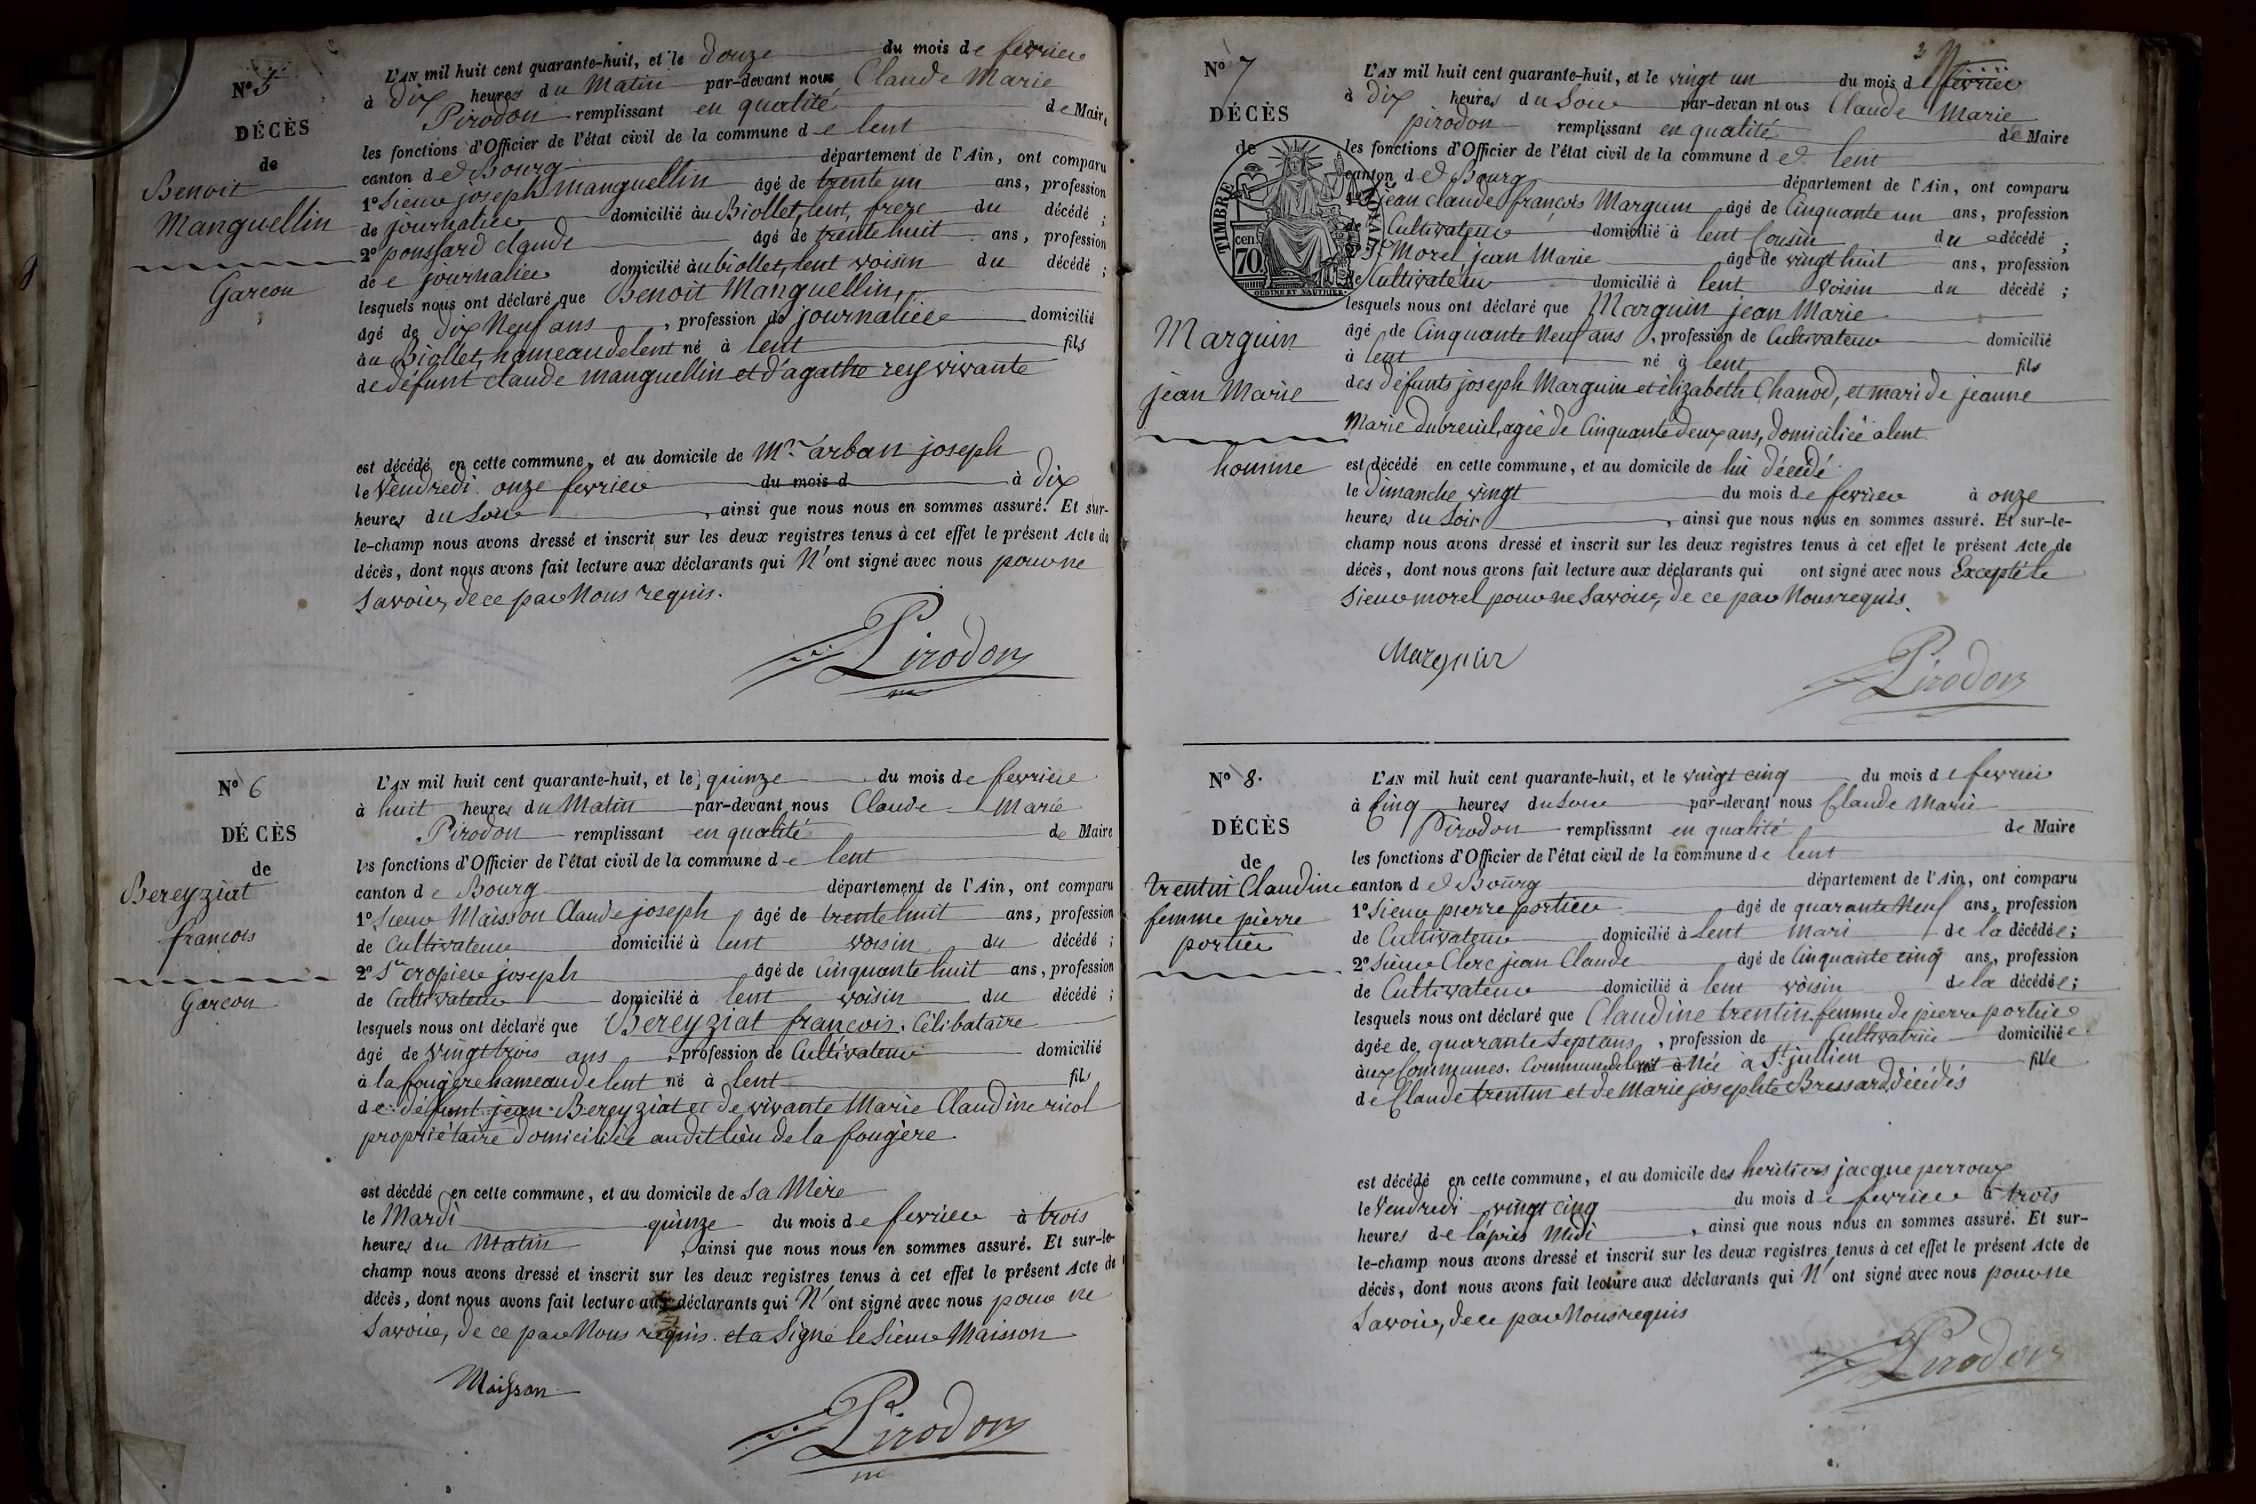 N° 5
DÉCÈS
de
Benoit
Manguellin
Garcon
L'AN mil huit cent quarante-huit, et le douze du mois de fevrier
à dix heures du Matin par-devant nous Claude Marie
Pirodon remplissant en qualité de Maire
les fonctions d'Officier de l'état civil de la commune de lent
canton de Bourg département de l'Ain, ont comparu
1° Sieur joseph manguellin âgé de trente un ans, profession
de journalier domicilié au Biollet, lent, frere du décédé ;
2° poussard claude âgé de trente huit ans, profession
de journalier domicilié au biollet, lent voisin du décédé ;
lesquels nous ont déclaré que Benoit Manguellin,
âgé de dix Neuf ans, profession de journalier domicilié
au Biollet, hameau de lent né à lent fils
de défunt claude manguellin et d'agathe rey vivante
est décédé en cette commune, et au domicile de Mr. arban joseph
le Vendredi onze fevrier du mois d à dix
heures du Soir, ainsi que nous nous en sommes assuré. Et sur-
le-champ nous avons dressé et inscrit sur les deux registres tenus à cet effet le présent Acte de
décès, dont nous avons fait lecture aux déclarants qui N'ont signé avec nous pour ne
Savoir, de ce par Nous requis.
Pirodon
N° 6
DÉCÈS
de
Bereyziat
francois
Garcon
L'AN mil huit cent quarante-huit, et le quinze du mois de fevrier
à huit heures du Matin par-devant nous Claude Marie
Pirodon remplissant en qualité de Maire
les fonctions d'Officier de l'état civil de la commune de lent
canton de Bourg département de l'Ain, ont comparu
1° Sieur Maisson Claude joseph âgé de trente huit ans, profession
de Cultivateur domicilié à lent voisin du décédé ;
2° Sr cropier joseph âgé de Cinquante huit ans, profession
de Cultivateur domicilié à lent voisin du décédé ;
lesquels nous ont déclaré que Bereyziat francois. Célibataire
âgé de Vingt trois ans, profession de Cultivateur domicilié
à la fougère hameau de lent né à lent fils
de défunt jean Bereyziat et de vivante Marie Claudine ricol
propriétaire domiciliée audit lieu de la fougère.
est décédé en cette commune, et au domicile de Sa Mère
le Mardi quinze du mois de fevrier à trois
heures du Matin, ainsi que nous nous en sommes assuré. Et sur-le-
champ nous avons dressé et inscrit sur les deux registres tenus à cet effet le présent Acte de
décès, dont nous avons fait lecture aux déclarants qui N'ont signé avec nous pour ne
Savoir, de ce par Nous requis. et a Signé le Sieur Maisson
Maisson
Pirodon
3
N° 7
DÉCÈS
de
TIMBRE
cen.
70
OUDINÉ ET VAUTHIER
Marguin
jean Marie
homme
L'AN mil huit cent quarante-huit, et le vingt un du mois de fevrier
à dix heures du Soir par-devan nt ous Claude Marie
pirodon remplissant en qualité de Maire
les fonctions d'Officier de l'état civil de la commune de lent
canton de Bourg département de l'Ain, ont comparu
jean claude françois Marguin âgé de Cinquante un ans, profession
de Cultivateur domicilié à lent Cousin du décédé ;
2° Sr Morel jean Marie âgé de vingt huit ans, profession
de Cultivateur domicilié à lent voisin du décédé ;
lesquels nous ont déclaré que Marguin jean Marie
âgé de Cinquante Neuf ans, profession de Cultivateur domicilié
à lent né à lent fils
des défunts joseph Marguin et élizabeth Chanod, et mari de jeanne
Marie dubreuil, agée de Cinquante deux ans, domiciliée a lent.
est décédé en cette commune, et au domicile de lui décédé
le dimanche vingt du mois de fevrier à onze
heures du Soir, ainsi que nous nous en sommes assuré. Et sur-le-
champ nous avons dressé et inscrit sur les deux registres tenus à cet effet le présent Acte de
décès, dont nous avons fait lecture aux déclarants qui ont signé avec nous Excepté le
Sieur morel pour ne Savoir, de ce par Nous requis.
Marguin
Pirodon
N° 8.
DÉCÈS
de
trentin Claudine
femme pierre
portier
L'AN mil huit cent quarante-huit, et le vingt cinq du mois de fevrier
à Cinq heures du Soir par-devant nous Claude Marie
Pirodon remplissant en qualité de Maire
les fonctions d'Officier de l'état civil de la commune de lent
canton de Bourg département de l'Ain, ont comparu
1° Sieur pierre portier âgé de quarante Neuf ans, profession
de Cultivateur domicilié à lent mari de la décédée ;
2° Sieur Clerc jean Claude âgé de Cinquante cinq ans, profession
de Cultivateur domicilié à lent voisin de la décédée ;
lesquels nous ont déclaré que Claudine trentin femme de pierre portier
âgée de quarante Sept ans, profession de Cultivatrice domiciliée
aux Communes. Commune de lent Née à St jullien fille
de Claude trentin et de Marie josephte Bressard, décédés
est décédé en cette commune, et au domicile des heritiers jacque perroux
le Vendredi vingt cinq du mois de fevrier à trois
heures de l'après Midi, ainsi que nous nous en sommes assuré. Et sur-
le-champ nous avons dressé et inscrit sur les deux registres tenus à cet effet le présent Acte de
décès, dont nous avons fait lecture aux déclarants qui N'ont signé avec nous pour ne
Savoir, de ce par Nous requis
Pirodon